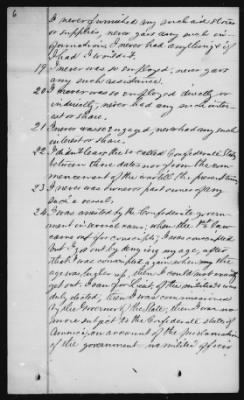 6
I never furnished any such aid stores
or supplies, never gave any such in-
formation; I never had anything if
I had I
19. I never was so employed; never gave
any such assistance.
20. I never was so employed directly or
indirectly, never had any such inter-
est or share.
21. I never was so engaged, never had any such
interest or share.
22. I did not leave the so called Confederate States
between those dates nor from the com-
mencement of the war till the present time
23. I never was owner or part owner of any
such a vessel.
24. I was arrested by the Confederate govern-
ment in several cases; when the
came out for conscripts; I was conscripted
but I got out by denying my age, after
that I was conscripted again when my
age was higher up, then I could not
get out. I ran for Lieut of the militia & was
duly elected, then I was commissioned
by the Governor of the State, then I was no
more subject to the Confederate states of
America, on account of the proclamation
of the government no militia officer